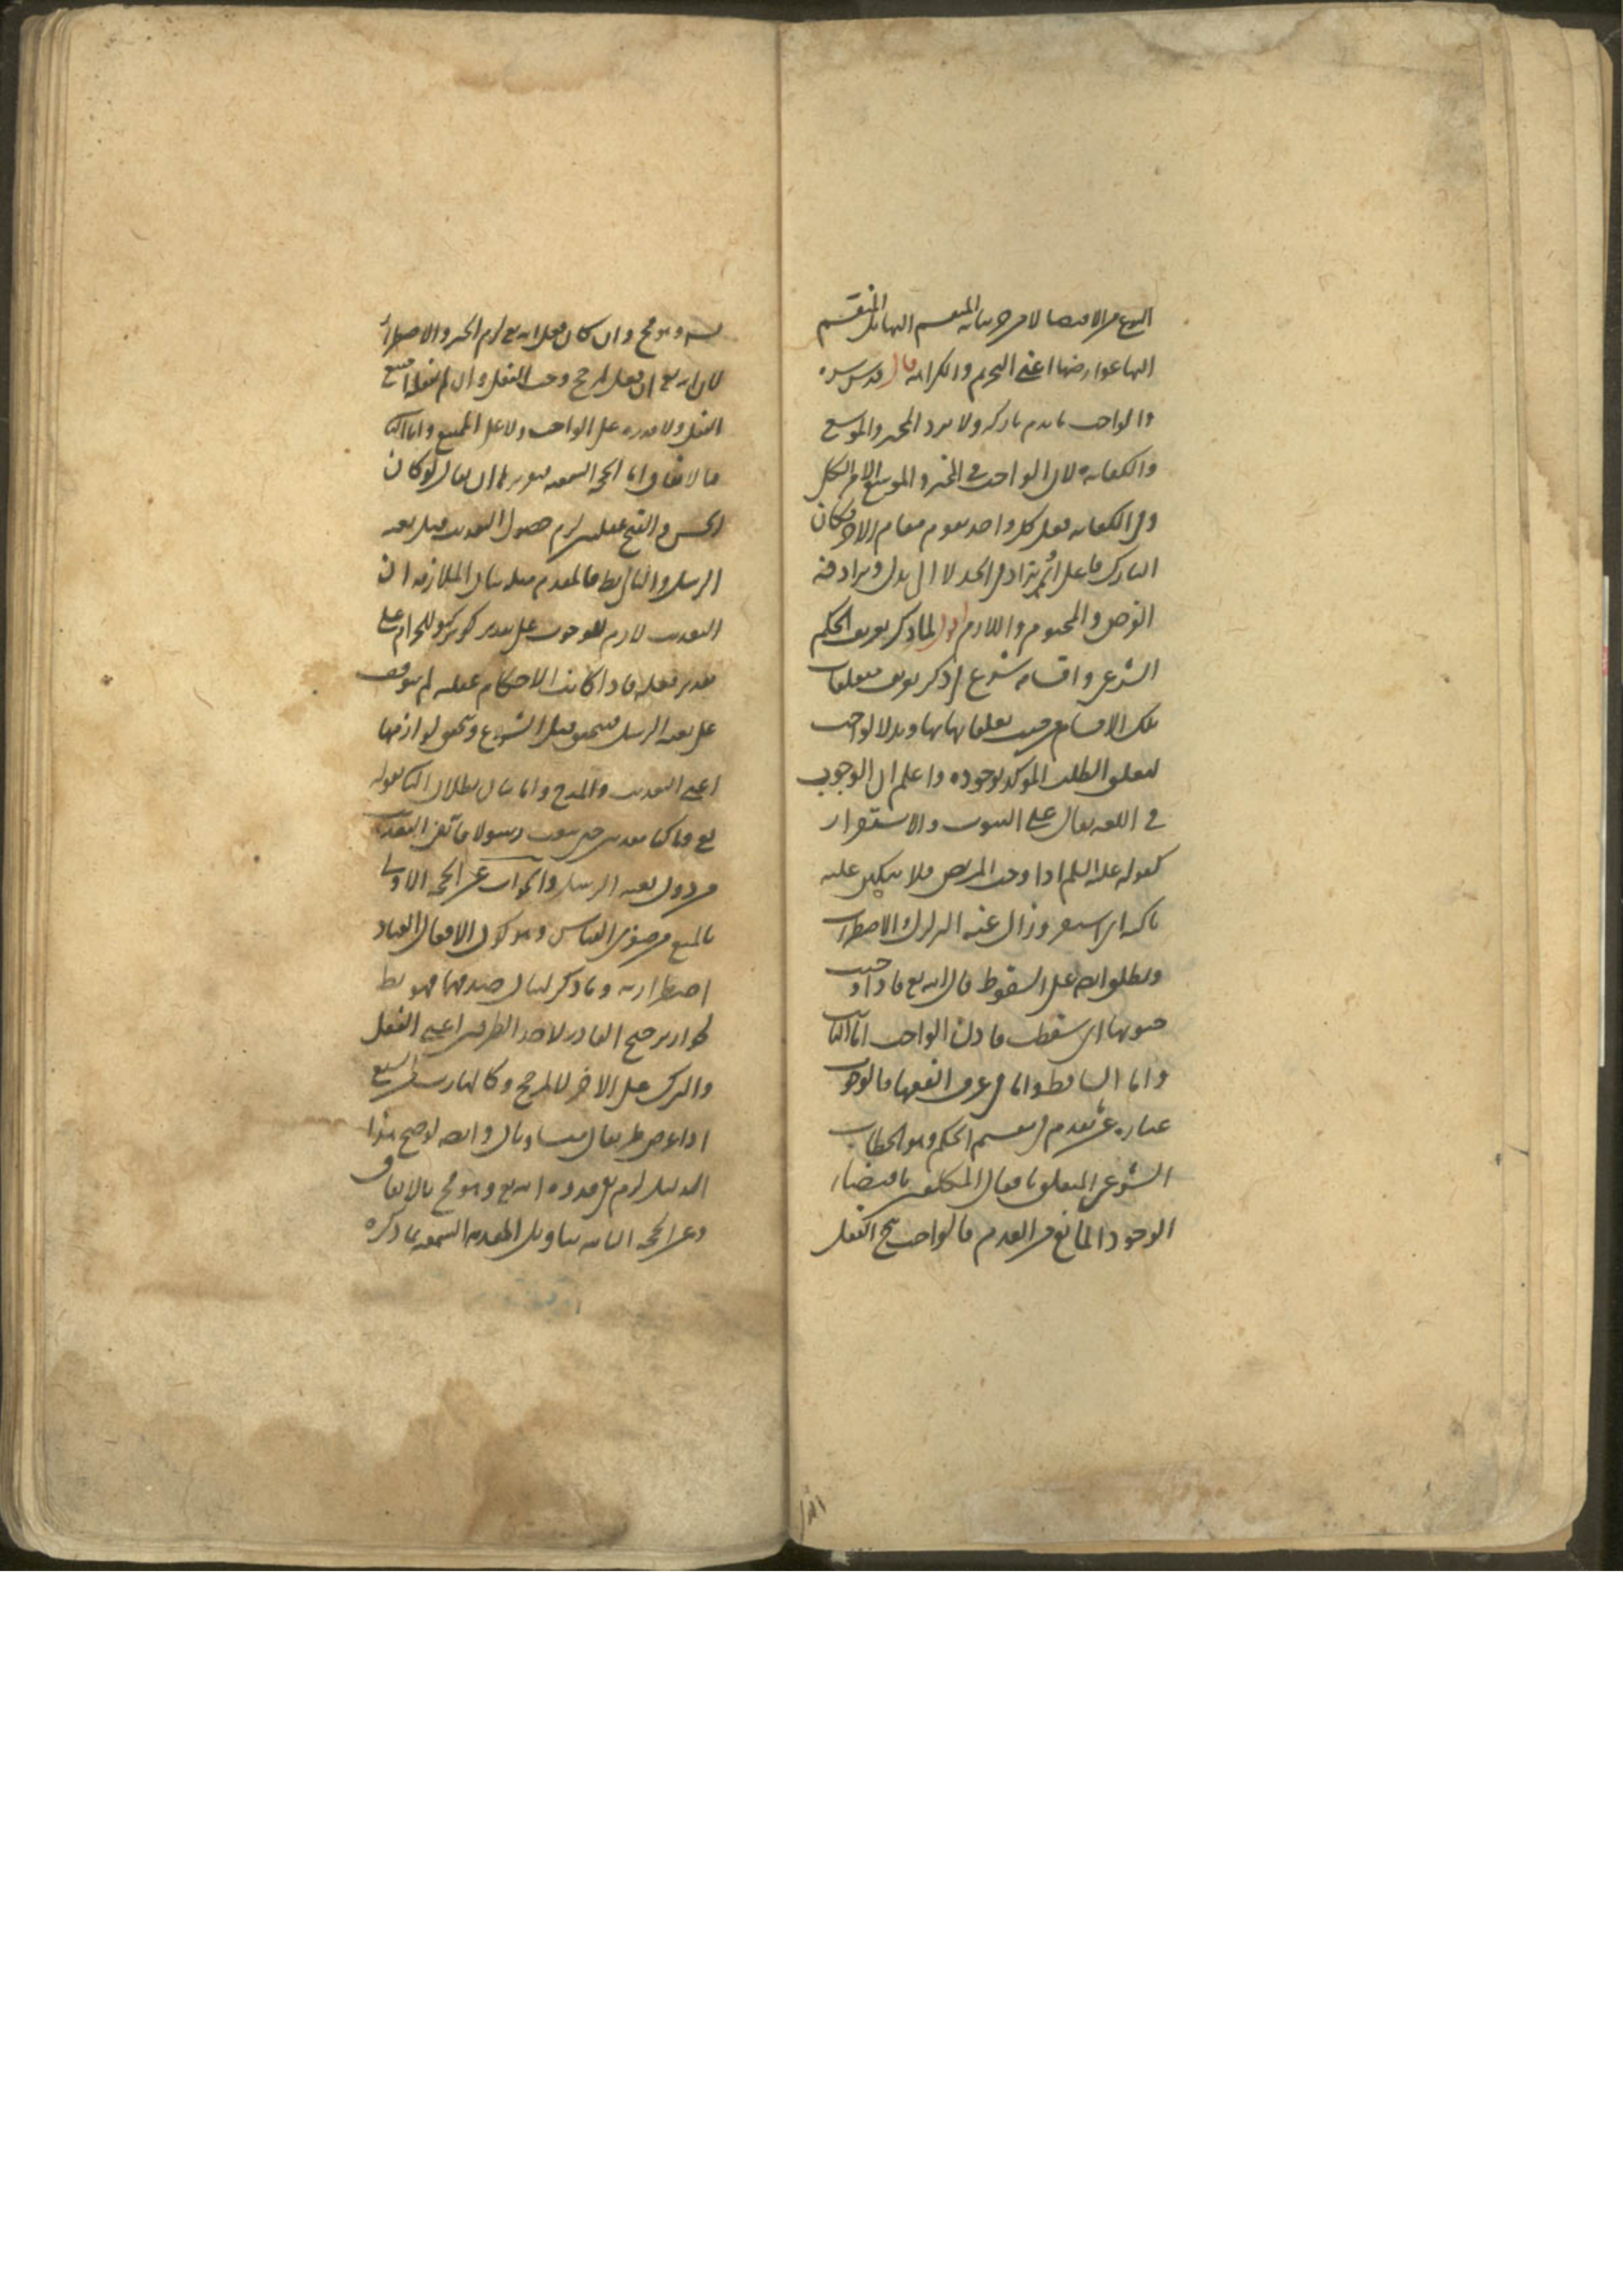 النوع من الاقتضا لا من حيثيه المنقسم اليها بل المنقسم
اليها عوارضها اعني التحريم والكراهه قال قدس سره
والواجب ما يذم تاركه ولا يرد المخير والموسع
والكفايه لان الواجب في المخير والموسع الامر الكلي
وفي الكفايه فعل كل واحد يقوم مقام الاخر فكان
التارك فاعلا ثم يزاد في الحد لا الى بدل ويرادفه
الفرض والمحتوم واللازم اقول لما ذكر تعريف الحكم
الشرعي واقسامه شرع في ذكر تعريف متعلقات
تلك الاقسام من حيث تعلقاتها بها وبدا بالواجب
لتعلق الطلب المؤكد بوجوده واعلم ان الوجوب
في اللغه يقال على الثبوت والاستقرار
كقوله عليه السلم اذا وجب المريض فلا تبكين عليه
باكيه اي استقر وزال عنه التزلزل والاضطراب
ويطلق ايضا على السقوط قال الله تع فاذا وجبت
جنوبها اي سقطت فاذن الواجب اما الثابت
واما الساقط واما في عرف الفقها فالوجوب
عباره عن تقدم في تقسيم الحكم وهو الخطاب
الشرعي المتعلق بافعال المكلفين باقتضاء
الوجود المانع من العدم فالواجب هو الفعل
وهو مح وان كان فعل الله تع لزم الجبر والاضطرار
لان الله تع ان فعل المرجح وجب الفعل وان لم يفعله امتنع
الفعل ولا قدره على الواجب ولا على الممتنع واما الثا
فالاتفاق واما الحجه السمعيه فتقريرها ان يقال لو كان
الحسن والقبح عقليين لزم حصول التعذيب قبل بعثه
الرسل والتالي بط فالمقدم مثله بيان الملازمه ان
التعذيب لازم للوجوب على تقدير تركه وللحرام على
تقدير فعله فاذا كانت الاحكام عقليه لم تتوقف
على بعثه الرسل فتتحقق قبل الشرع وتتحقق لوازمها
اعني التعذيب والمدح واما بيان بطلان الثا فقوله
تع وما كنا معذبين حتى نبعث رسولا فانه نفى التعذيب
من دون بعثه الرسل والجواب عن الحجه الاولى
بالمنع من صغرى القياس وهو كون الافعال العباد
اضطراريه وما ذكر لبيان صدقها فهو بط
لجواز ترجيح القادر لاحد الطرفين اعني الفعل
والترك على الاخر لا لمرجح وكالهارب من السبع
اذا عرض له طريقان متساويان وايضا لو صح هذا
الدليل لزم نفي قدره الله تع وهو مح بالاتفاق
وعن الحجه الثانيه بتاويل المقدمه السمعيه بما ذكره